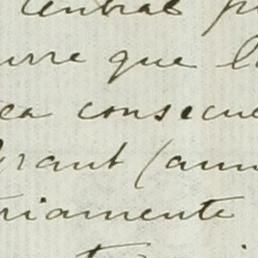 central
urre que l
ea consecue
Grant (aun
riamente